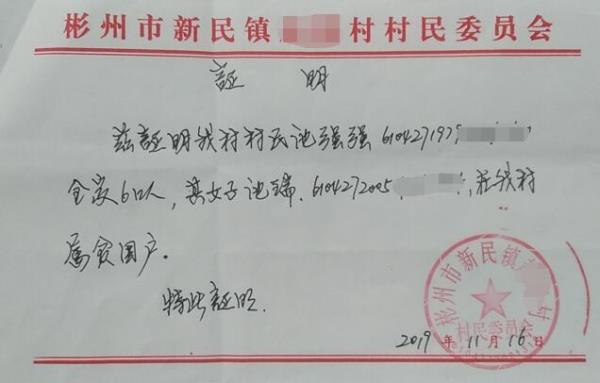 彬州市新民镇 村村民委员会
证 明
兹证明我村村民池强强 6104271975
全家6口人，其女子池瑞. 6104272005 ，在我村
属贫困户.
特此证明.
彬州市新民镇 村
村民委员会
2019 年 11 月 16 日